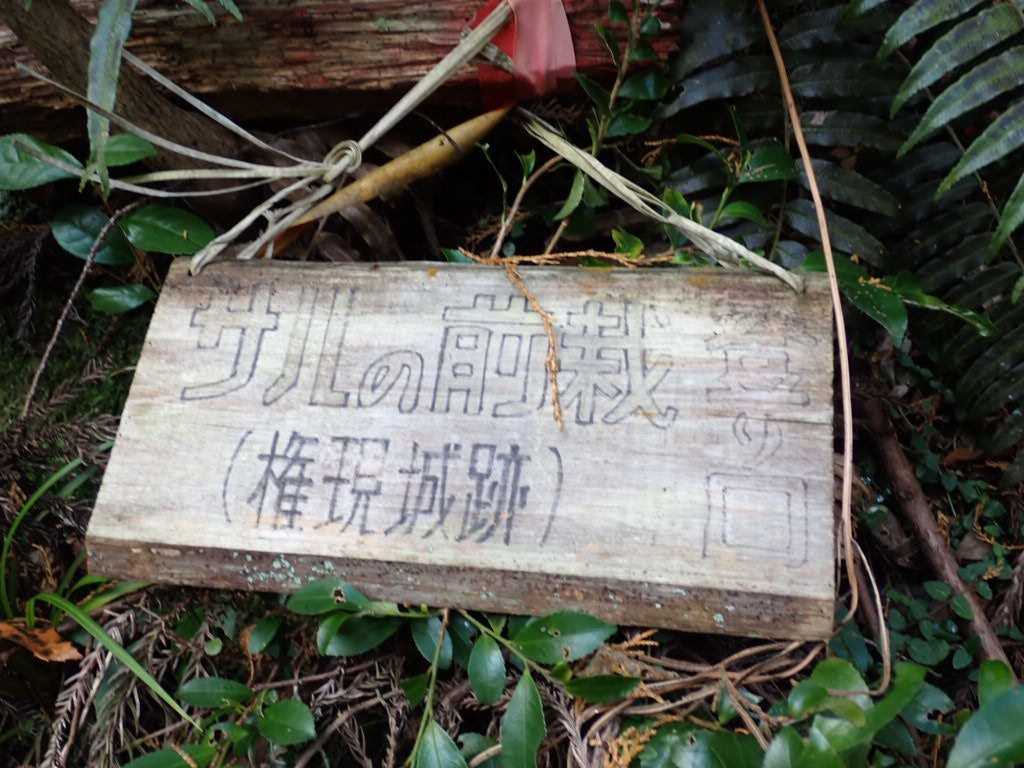 サルの前栽
(権現城跡)
登り口